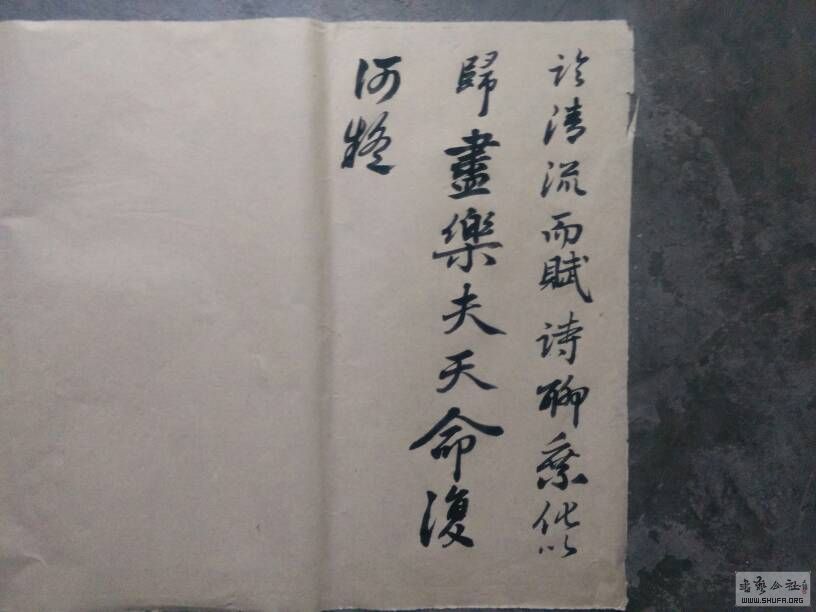 臨清流而賦詩聊乘化以
歸盡樂夫天命復
何疑
書藝公社
WWW.SHUFA.ORG